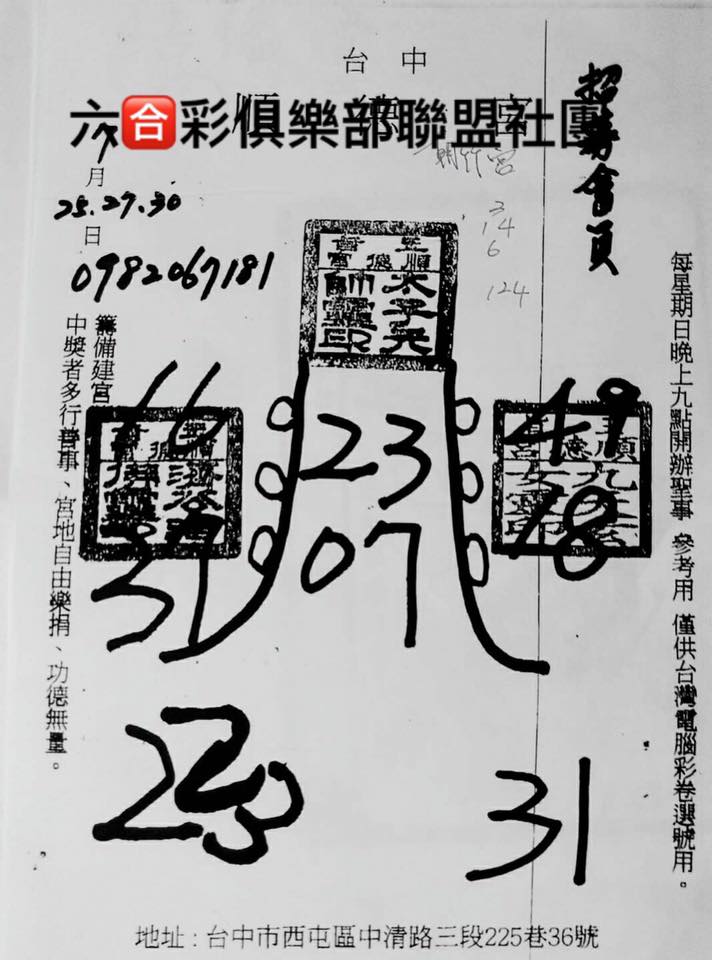 台中
順德宮
六合彩俱樂部聯盟社團
招募會員
朝竹宮
7
月
25.27.30
日
0982067181
14
6
124
每星期日晚上九點開辦聖事 參考用 僅供台灣電腦彩卷選號用。
太子元
帥靈印
23
07
16
31
49
18
23
31
籌備建宮
中獎者多行善事、宮地自由樂捐、功德無量。
地址：台中市西屯區中清路三段225巷36號